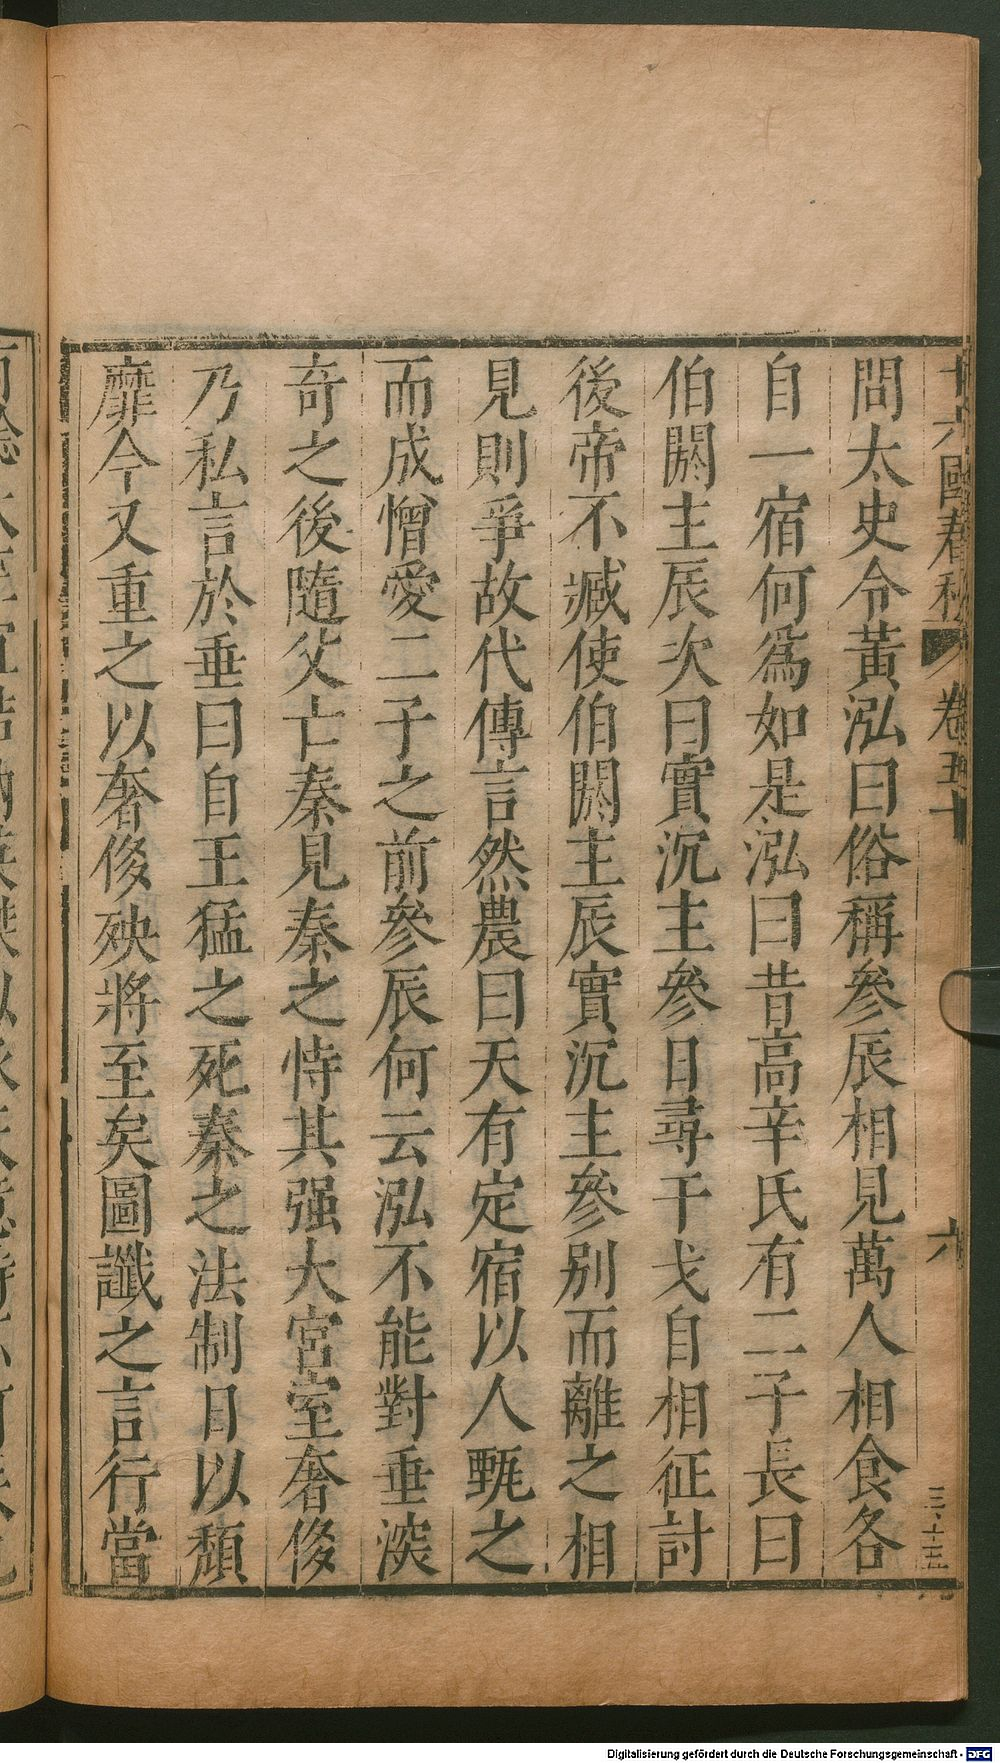 十六國春秋 卷五十 六 三·十五
問太史令黃泓曰俗稱參辰相見萬人相食各
自一宿何爲如是泓曰昔高辛氏有二子長曰
伯閼主辰次曰實沉主參日尋干戈自相征討
後帝不臧使伯閼主辰實沉主參別而離之相
見則爭故代傳言然農曰天有定宿以人甄之
而成憎愛二子之前參辰何云泓不能對垂深
奇之後隨父亡秦見秦之恃其强大宮室奢侈
乃私言於垂曰自王猛之死秦之法制日以頹
靡今又重之以奢侈殃將至矣圖讖之言行當
Digitalisierung gefördert durch die Deutsche Forschungsgemeinschaft - DFG